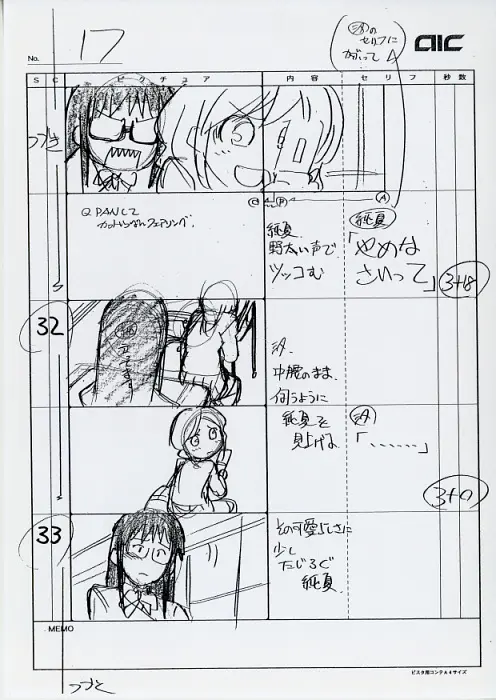 No. 17
汐のセリフにかぶって
aic
S C ピクチュア 内容 セリフ 秒数
つづき
Q.PANして
純夏
野太い声で
ツッコむ
純夏
「やめな
さいって」
3+18
32
汐、
中腰のまま、
伺うように
純夏を
見上げる
汐
「、、、、、、」
3+0
33
その可愛らしさに
少し
たじろぐ
純夏
MEMO
ビスタ用コンテA4サイズ
つづく